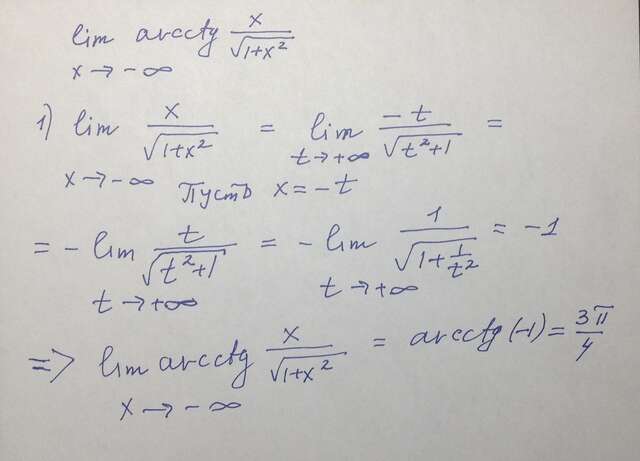 lim arcctg x/√(1+x²)
x → -∞
1) lim x/√(1+x²) = lim -t/√(t²+1) =
x → -∞ t → +∞
Пусть x = -t
= - lim t/√(t²+1) = - lim 1/√(1+1/t²) = -1
t → +∞ t → +∞
=> lim arcctg x/√(1+x²) = arcctg (-1) = 3π/4
x → -∞